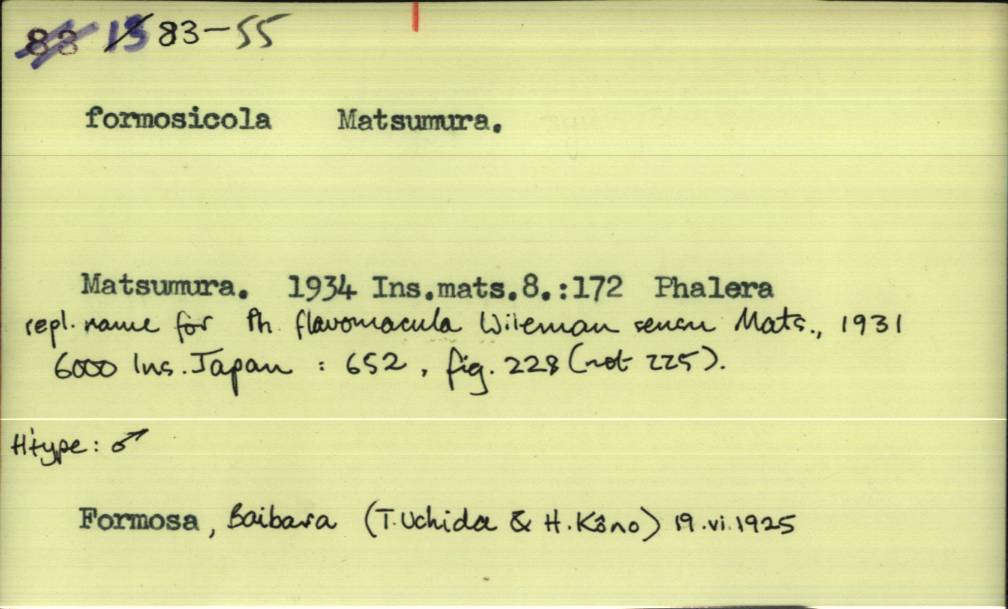 83 13 83-55
formosicola Matsumura.
Matsumura. 1934 Ins.mats.8.:172 Phalera
repl. name for Ph. flavomacula Wileman sensu Mats., 1931
6000 Ins. Japan : 652, fig. 228 (not 225).
H'type: ♂
Formosa, Baibara (T. Uchida & H. Kôno) 19.vi.1925